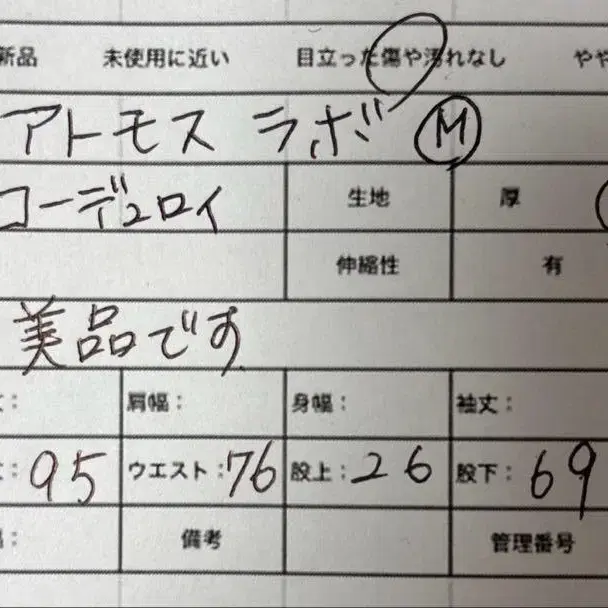 新品 未使用に近い 目立った傷や汚れなし やや
アトモス ラボ M
コーデュロイ 生地 厚
伸縮性 有
美品です
丈: 肩幅: 身幅: 袖丈:
丈: 95 ウエスト: 76 股上: 26 股下: 69
幅: 備考 管理番号